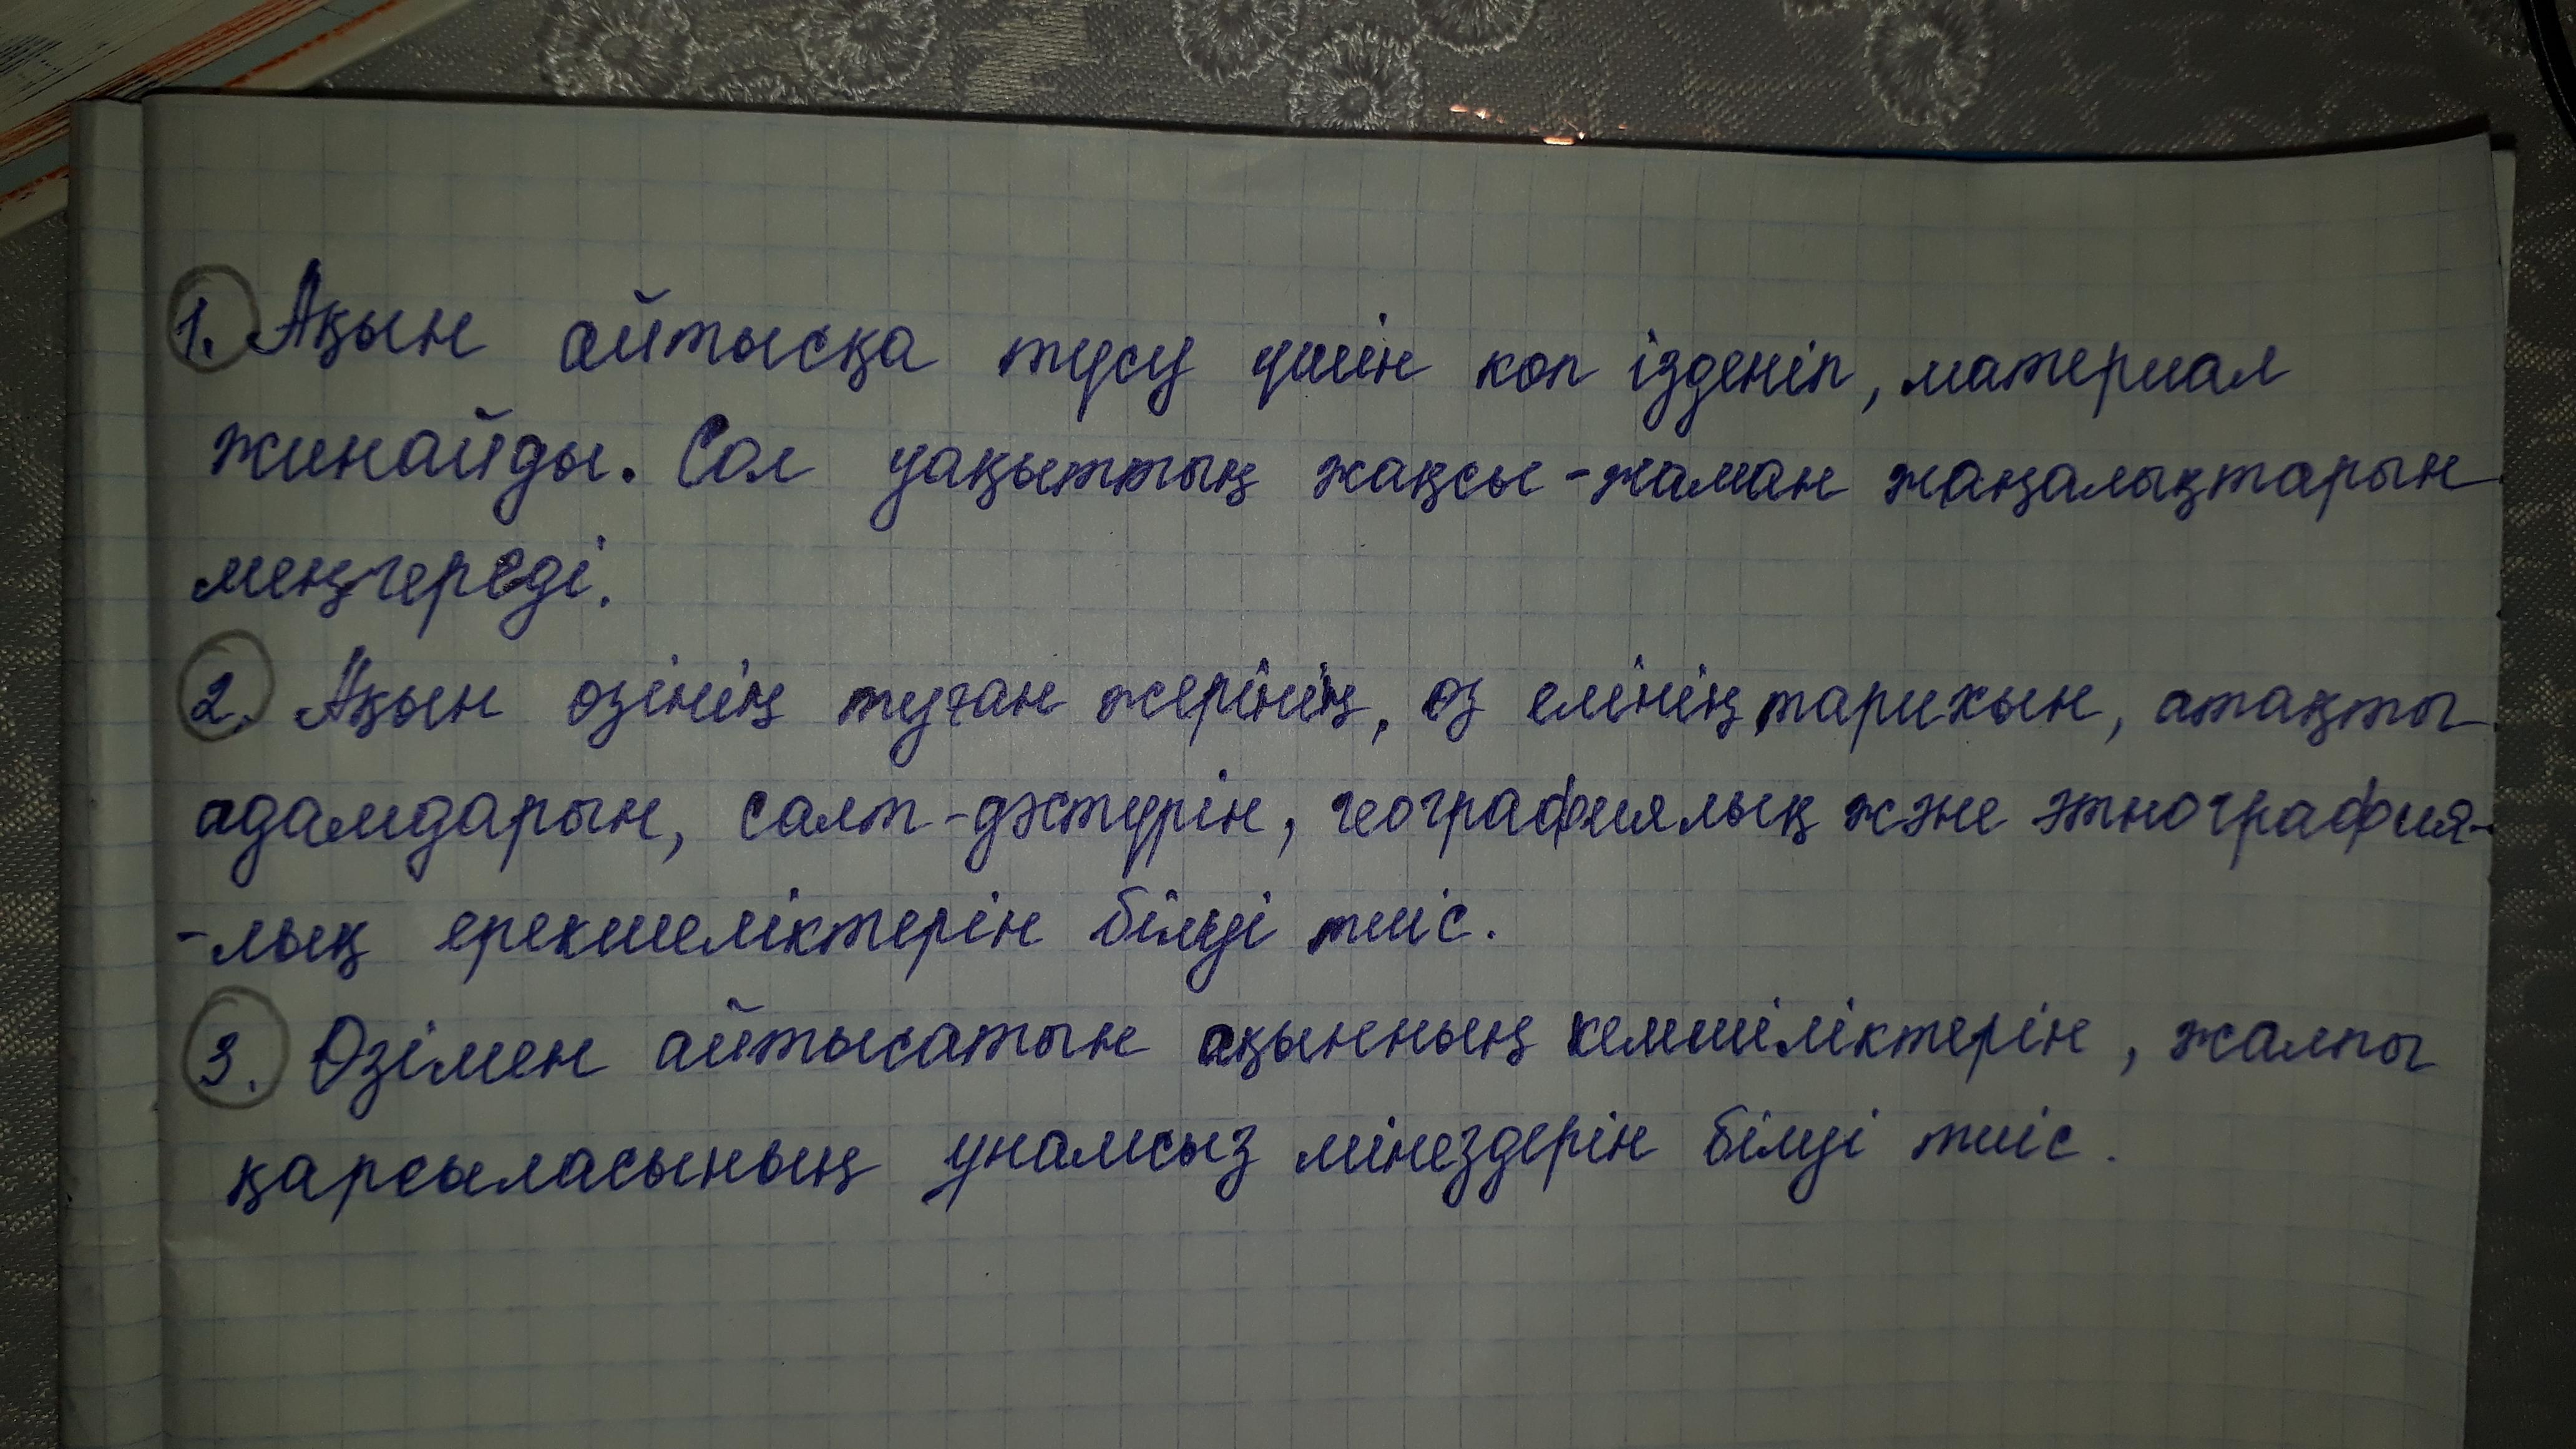 1. Ақын айтысқа түсу үшін көп ізденіп, материал
жинайды. Сол уақыттың жақсы-жаман жаңалықтарын
меңгереді.
2. Ақын өзінің туған жерінің, өз елінің тарихын, атақты
адамдарын, салт-дәстүрін, географиялық және этнография-
-лық ерекшеліктерін білуі тиіс.
3. Өзімен айтысатын ақынның кемшіліктерін, жалпы
қарсыласының ұнамсыз мінездерін білуі тиіс.